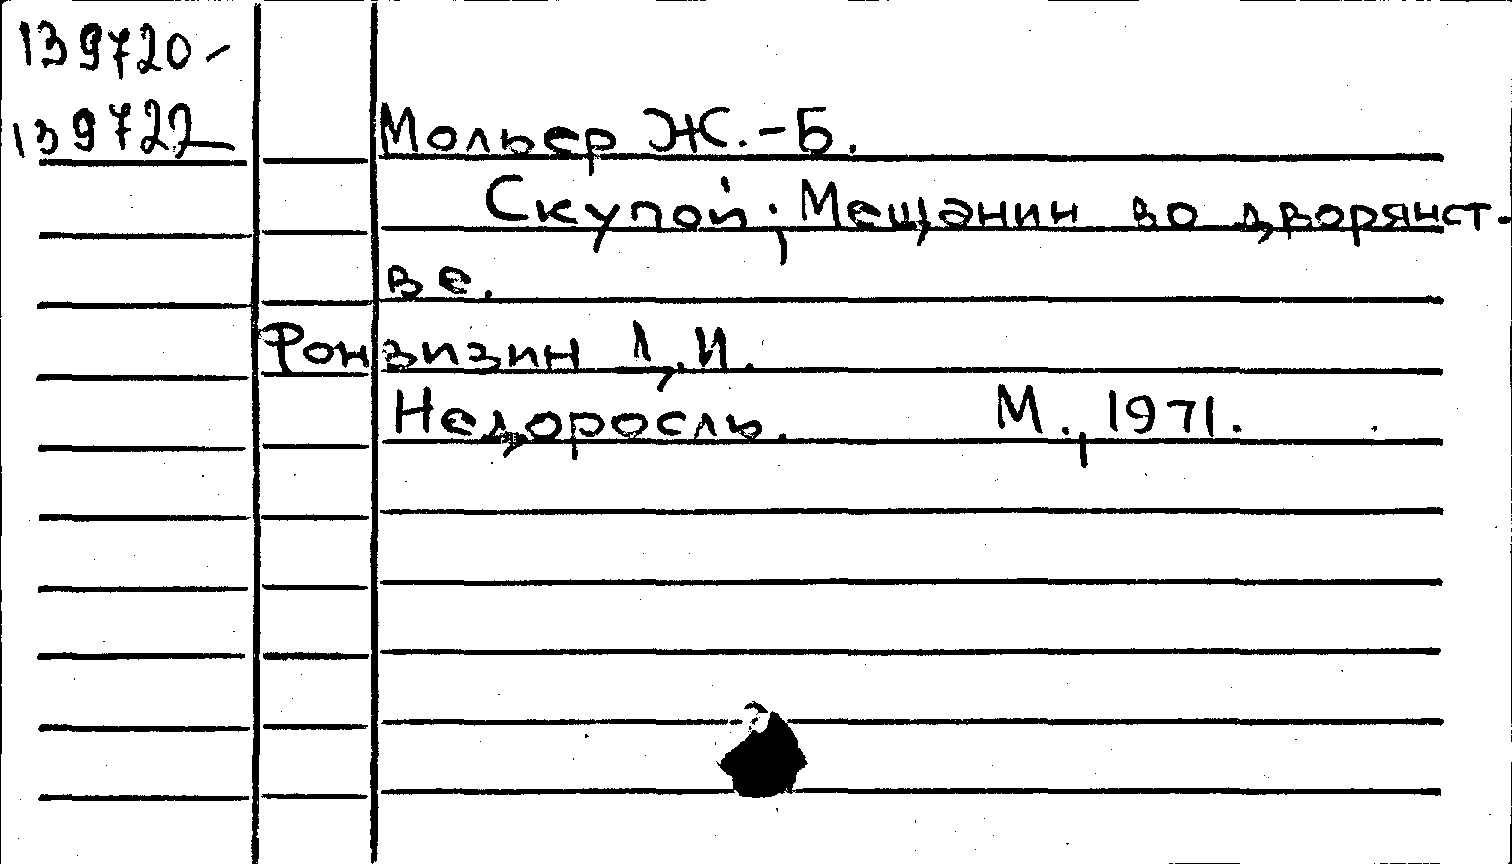 139720-
139722
Мольер Ж.-Б.
Скупой; Мещанин во дворянст-
ве.
Фонвизин Д.И.
Недоросль. М., 1971.